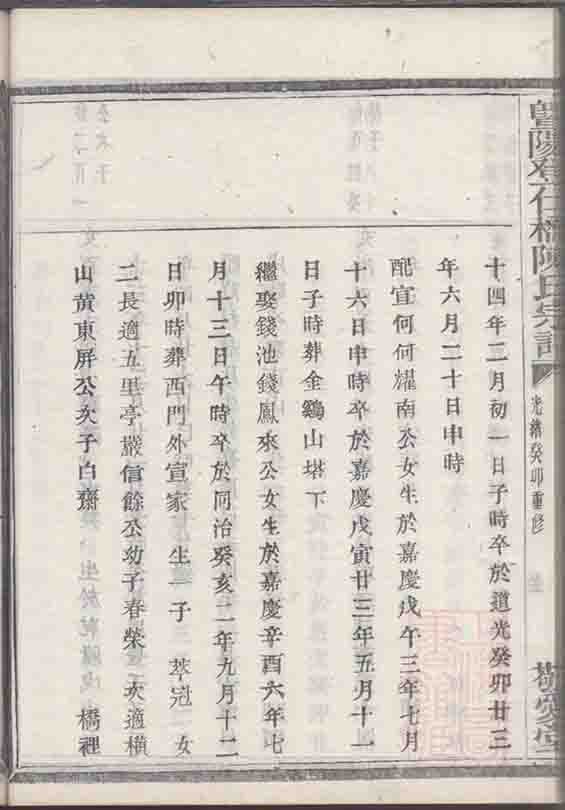 暨陽登仕橋陳氏宗譜 光緒癸卯重修 敬愛堂
十四年二月初一日子時卒於道光癸卯廿三
年六月二十日申時
配宣何何耀南公女生於嘉慶戊午三年七月
十六日申時卒於嘉慶戊寅廿三年五月十一
日子時葬金鷄山塔下
繼娶錢池錢鳳來公女生於嘉慶辛酉六年七
月十三日午時卒於同治癸亥二年九月十二
日卯時葬西門外宣家 生 子 萃冠 女
二長適五里亭嚴信餘公幼子春榮 次適橫
山黄東屏公次子白齋 橋裡